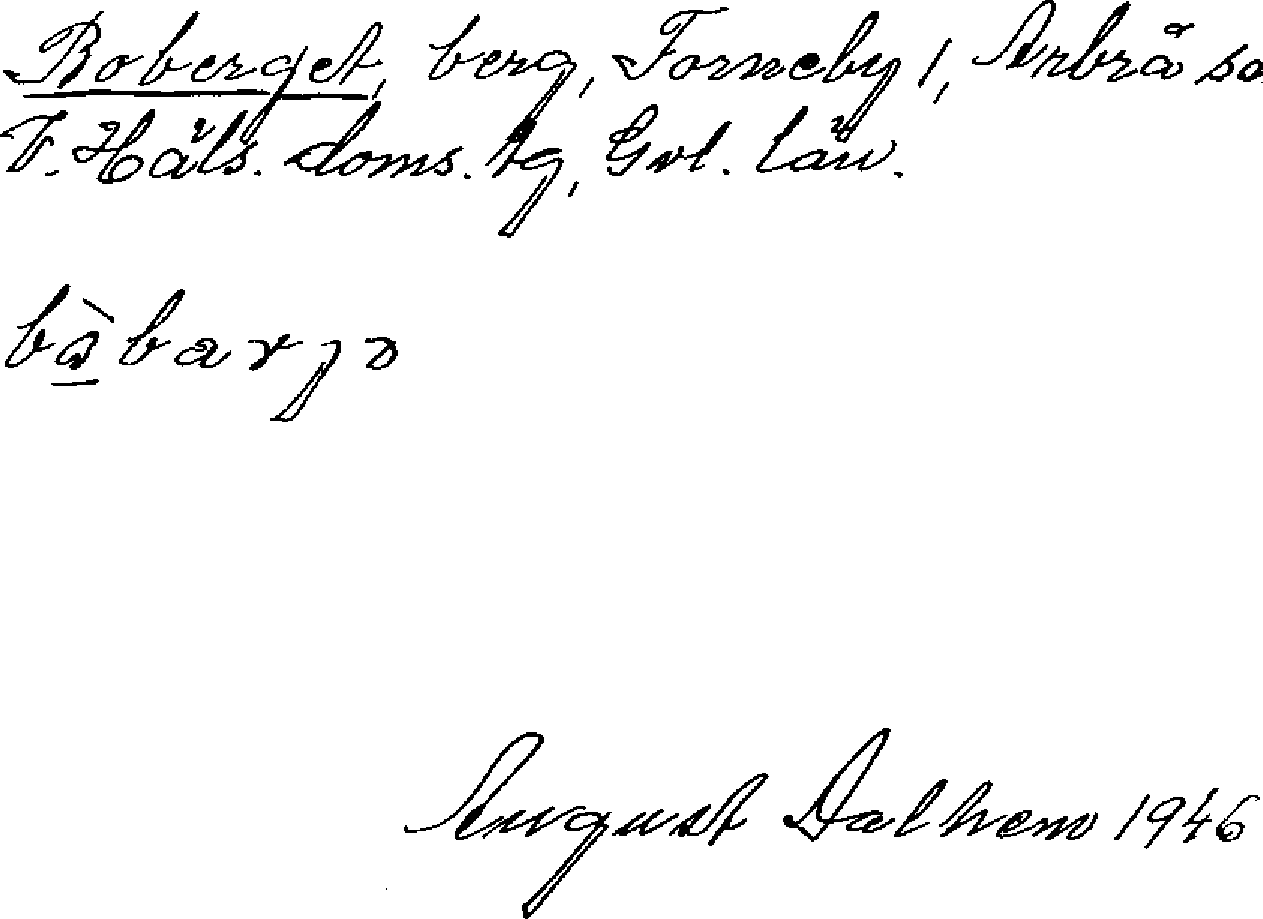 Boberget, berg, Forneby 1, Arbrå so
V. Häls. doms. tg, Gvl. län.
bàbarjə
August Dalhem 1946